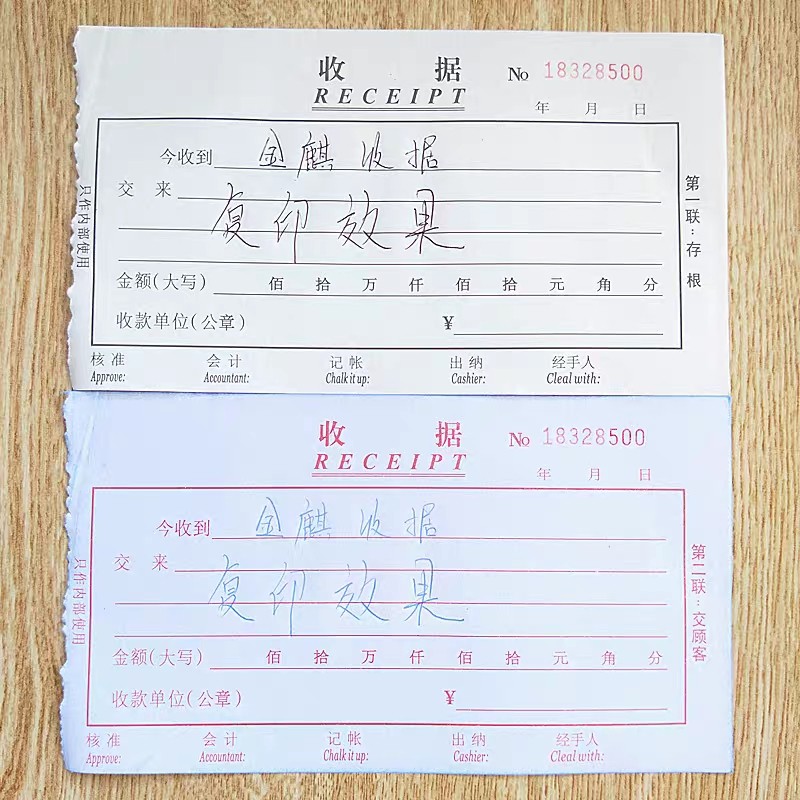 收 据 No 18328500
RECEIPT
年 月 日
今收到 金麒收据
交 来 复印效果
金额(大写) 佰 拾 万 仟 佰 拾 元 角 分
收款单位(公章) ¥
核准 会计 记帐 出纳 经手人
Approve: Accountant: Chalk it up: Cashier: Cleal with:
只作内部使用
第一联:存根
收 据 No 18328500
RECEIPT
年 月 日
今收到 金麒收据
交 来 复印效果
金额(大写) 佰 拾 万 仟 佰 拾 元 角 分
收款单位(公章) ¥
核准 会计 记帐 出纳 经手人
Approve: Accountant: Chalk it up: Cashier: Cleal with:
只作内部使用
第二联:交顾客